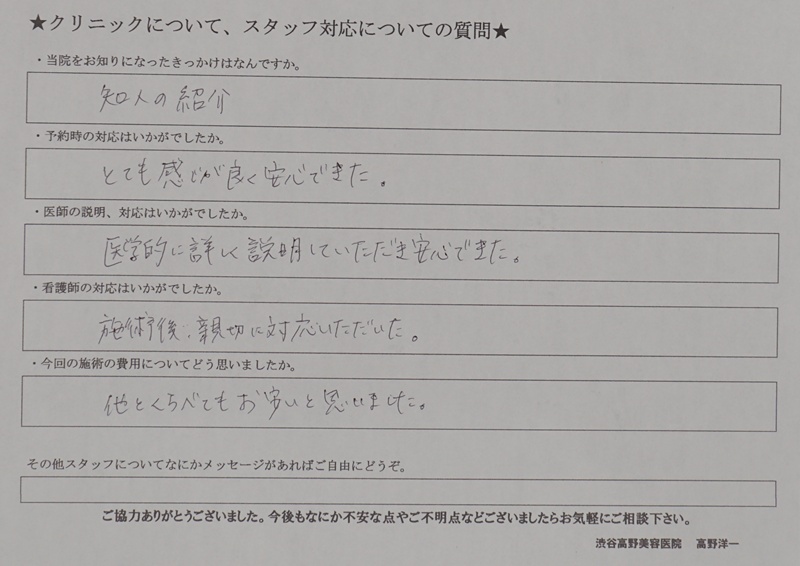 ★クリニックについて、スタッフ対応についての質問★
・当院をお知りになったきっかけはなんですか。
知人の紹介
・予約時の対応はいかがでしたか。
とても感じが良く安心できた。
・医師の説明、対応はいかがでしたか。
医学的に詳しく説明していただき安心できた。
・看護師の対応はいかがでしたか。
施術後、親切に対応いただいた。
・今回の施術の費用についてどう思いましたか。
他とくらべてもお安いと思いました。
その他スタッフについてなにかメッセージがあればご自由にどうぞ。
ご協力ありがとうございました。今後もなにか不安な点やご不明点などございましたらお気軽にご相談下さい。
渋谷高野美容医院 高野洋一